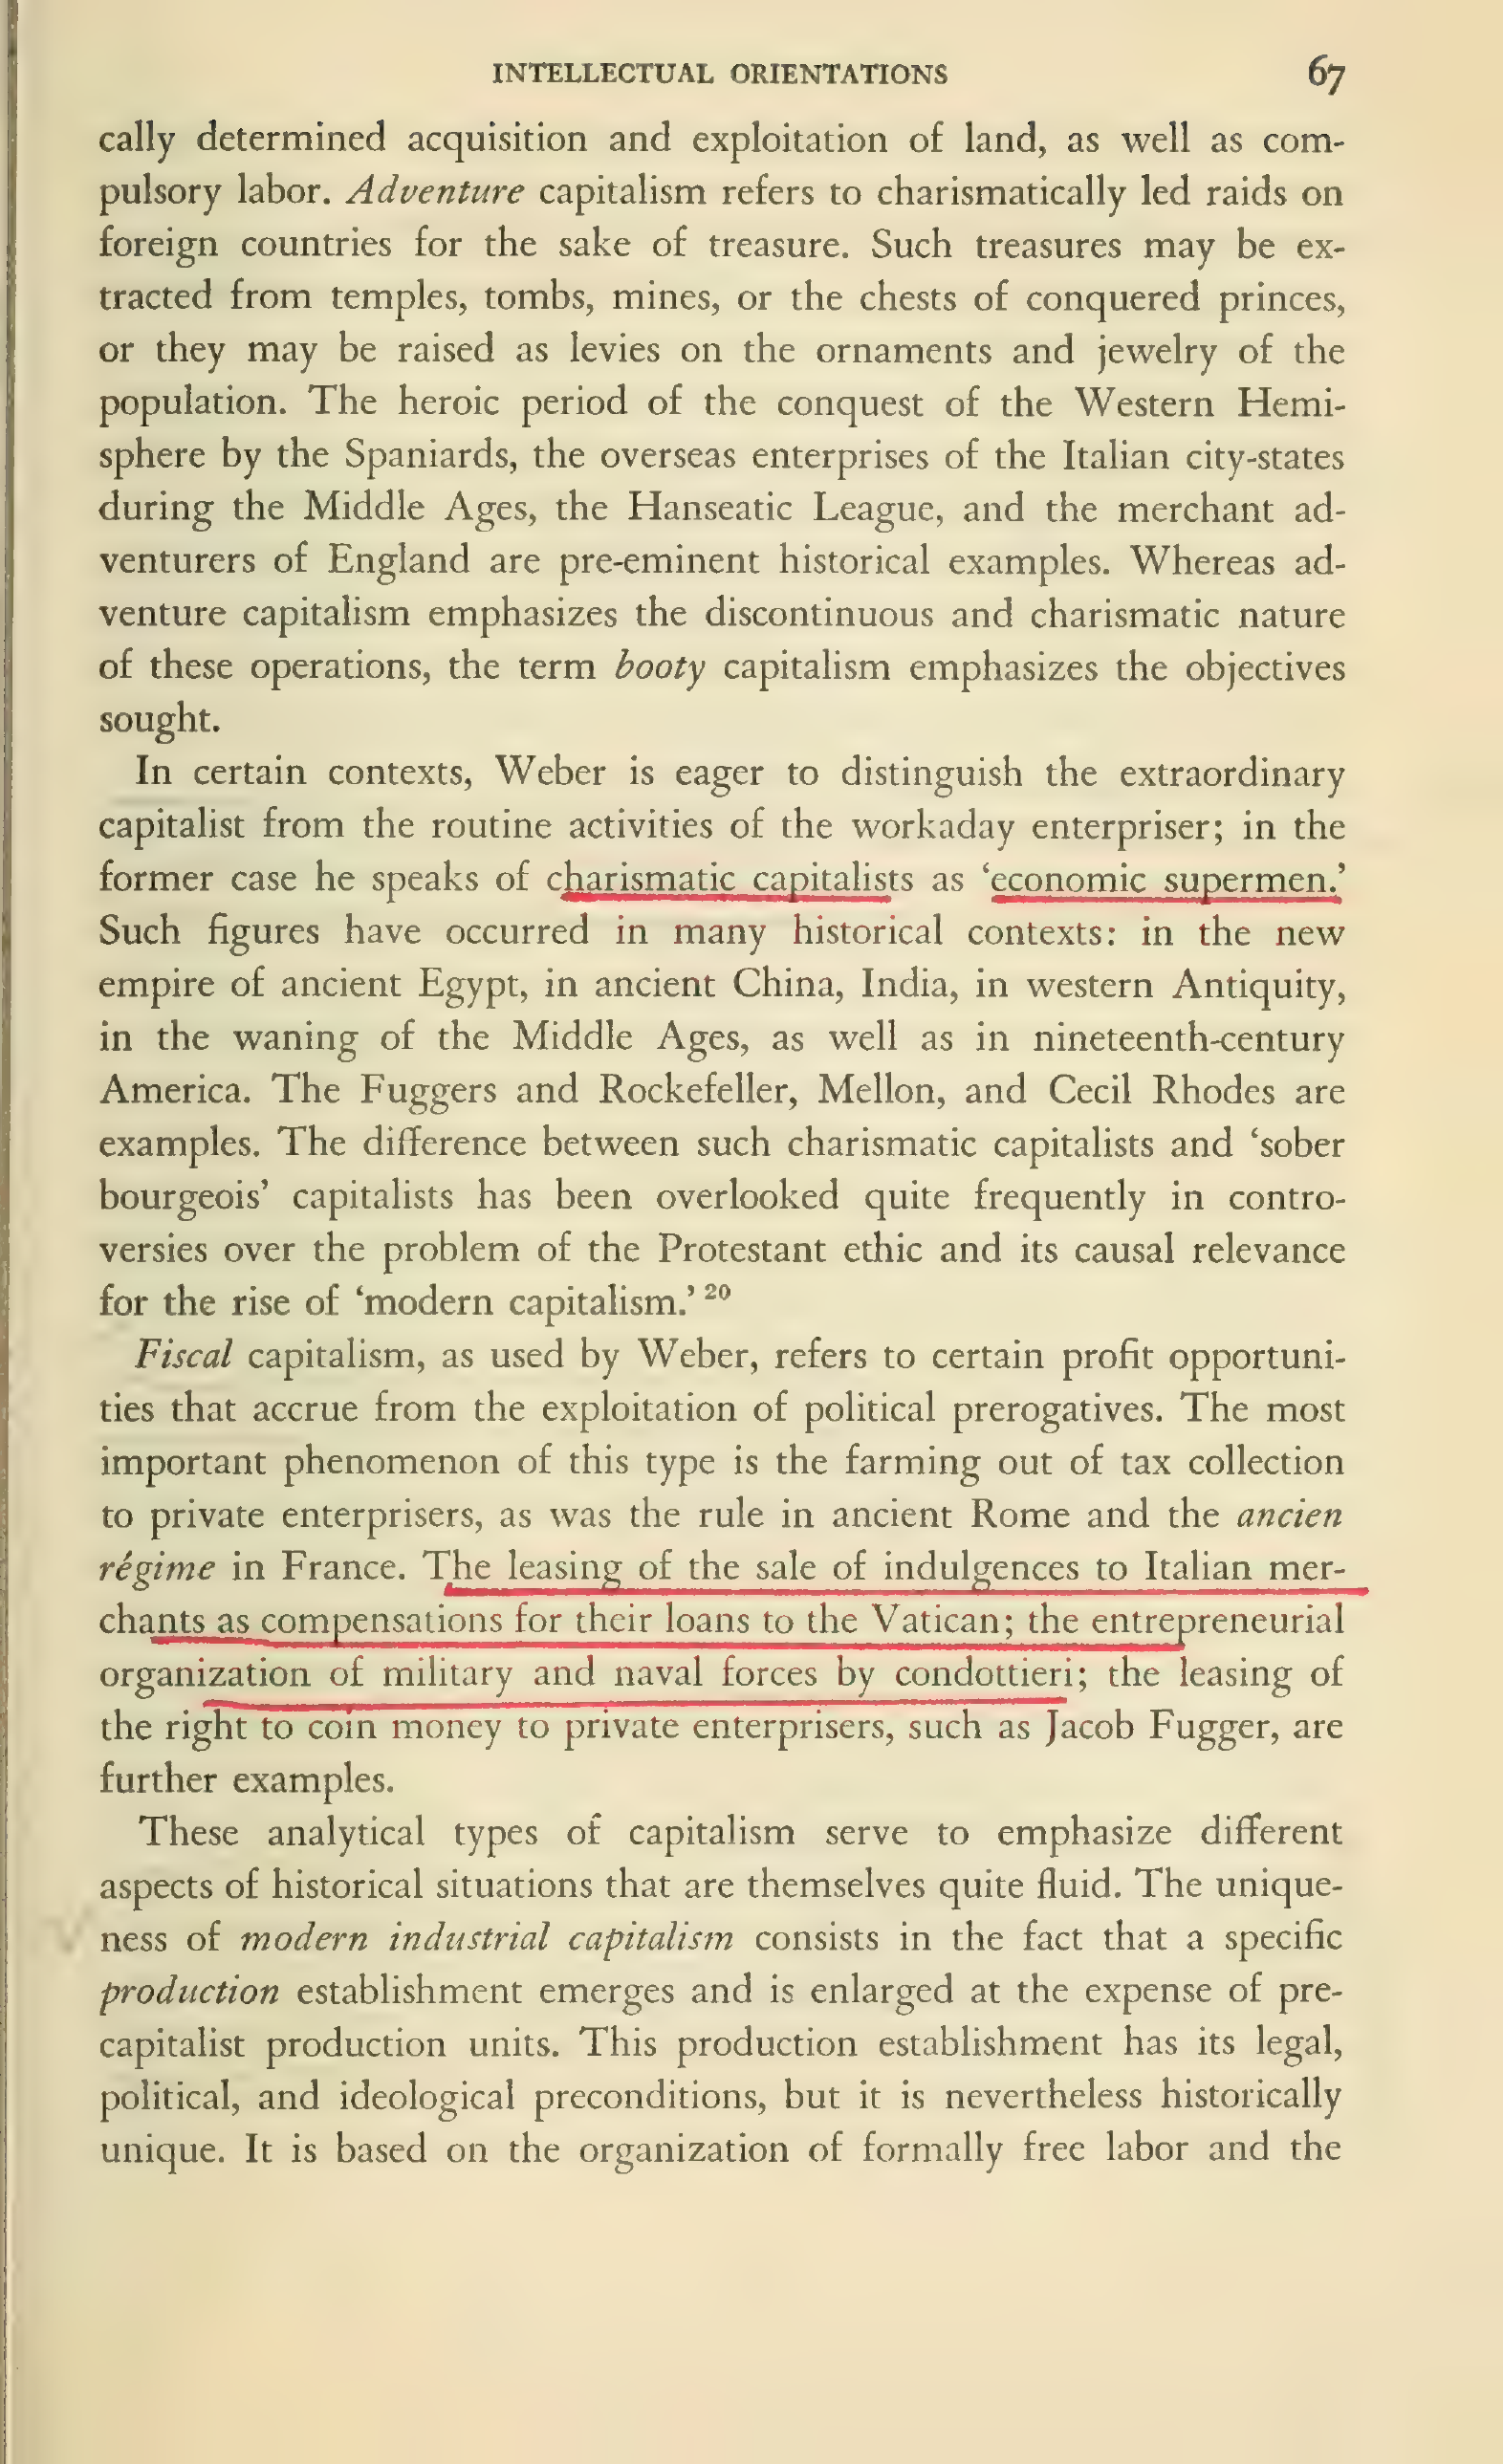 INTELLECTUAL ORIENTATIONS 67
cally determined acquisition and exploitation of land, as well as com-
pulsory labor. Adventure capitalism refers to charismatically led raids on
foreign countries for the sake of treasure. Such treasures may be ex-
tracted from temples, tombs, mines, or the chests of conquered princes,
or they may be raised as levies on the ornaments and jewelry of the
population. The heroic period of the conquest of the Western Hemi-
sphere by the Spaniards, the overseas enterprises of the Italian city-states
during the Middle Ages, the Hanseatic League, and the merchant ad-
venturers of England are pre-eminent historical examples. Whereas ad-
venture capitalism emphasizes the discontinuous and charismatic nature
of these operations, the term booty capitalism emphasizes the objectives
sought.
In certain contexts, Weber is eager to distinguish the extraordinary
capitalist from the routine activities of the workaday enterpriser; in the
former case he speaks of charismatic capitalists as ‘economic supermen.’
Such figures have occurred in many historical contexts: in the new
empire of ancient Egypt, in ancient China, India, in western Antiquity,
in the waning of the Middle Ages, as well as in nineteenth-century
America. The Fuggers and Rockefeller, Mellon, and Cecil Rhodes are
examples. The difference between such charismatic capitalists and ‘sober
bourgeois’ capitalists has been overlooked quite frequently in contro-
versies over the problem of the Protestant ethic and its causal relevance
for the rise of ‘modern capitalism.’ 20
Fiscal capitalism, as used by Weber, refers to certain profit opportuni-
ties that accrue from the exploitation of political prerogatives. The most
important phenomenon of this type is the farming out of tax collection
to private enterprisers, as was the rule in ancient Rome and the ancien
régime in France. The leasing of the sale of indulgences to Italian mer-
chants as compensations for their loans to the Vatican; the entrepreneurial
organization of military and naval forces by condottieri; the leasing of
the right to coin money to private enterprisers, such as Jacob Fugger, are
further examples.
These analytical types of capitalism serve to emphasize different
aspects of historical situations that are themselves quite fluid. The unique-
ness of modern industrial capitalism consists in the fact that a specific
production establishment emerges and is enlarged at the expense of pre-
capitalist production units. This production establishment has its legal,
political, and ideological preconditions, but it is nevertheless historically
unique. It is based on the organization of formally free labor and the